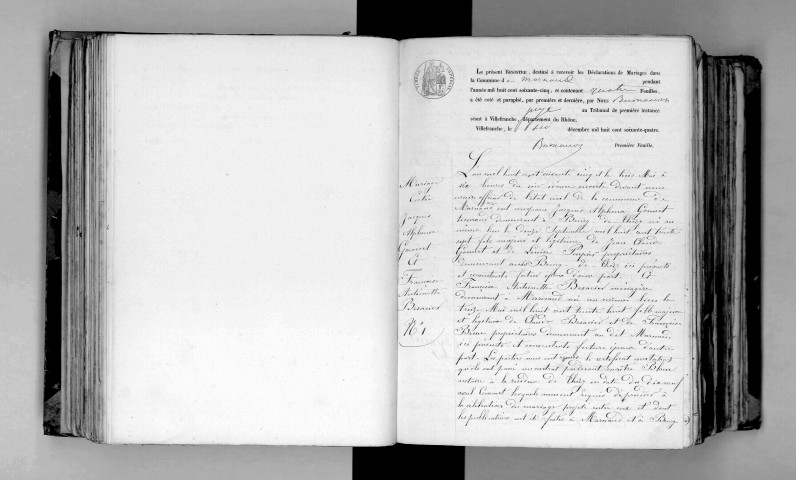 Le présent Registre, destiné à recevoir les Déclarations de Mariages dans
la Commune de Marnand pendant
l'année mil huit cent soixante-cinq, et contenant quatre Feuilles,
a été coté et paraphé, par première et dernière, par Nous
juge au Tribunal de première instance
séant à Villefranche, département du Rhône.
Villefranche, le décembre mil huit cent soixante-quatre.
Première Feuille.
Mariage
Entre
Jacques
Alphonse
Et
Françoise
Antoinette
Besacier
N° 1
L'an mil huit cent soixante cinq et le trois Mai à
six heures du soir devant nous
maire officier de l'état civil de la commune de
Marnand ont comparu Jacques Alphonse
demeurant à Bourg de Thizy né au
même lieu le douze Septembre mil huit cent trente
sept fils majeur et légitime de Jean Claude
et de propriétaires
demeurant audit Bourg de Thizy ici présents
et consentants futur époux d'une part. Et
Françoise Antoinette Besacier ménagère
demeurant à Marnand née au même lieu le
treize Mai mil huit cent trente huit fille majeure
et légitime de Claude Besacier et de Françoise
propriétaires demeurant au dit Marnand
ici présents et consentants future épouse d'autre
part. Les parties nous ont remis le certificat constatant
qu'ils ont passé un contrat par devant maître
notaire à la résidence de Thizy en date du dix neuf
avril courant lesquels nous ont requis de procéder à
la célébration du mariage projeté entre eux et dont
les publications ont été faites à Marnand et à Bourg